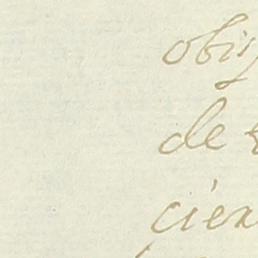 obis
de
cien